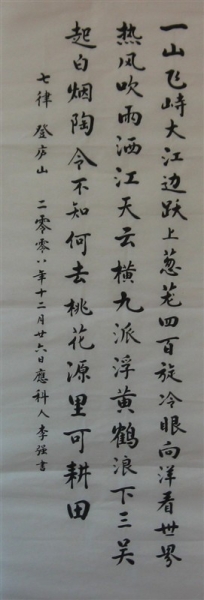 一山飞峙大江边跃上葱茏四百旋冷眼向洋看世界
热风吹雨洒江天云横九派浮黄鹤浪下三吴
起白烟陶令不知何去桃花源里可耕田
七律 登庐山 二零零八年十二月廿六日應科人李强書